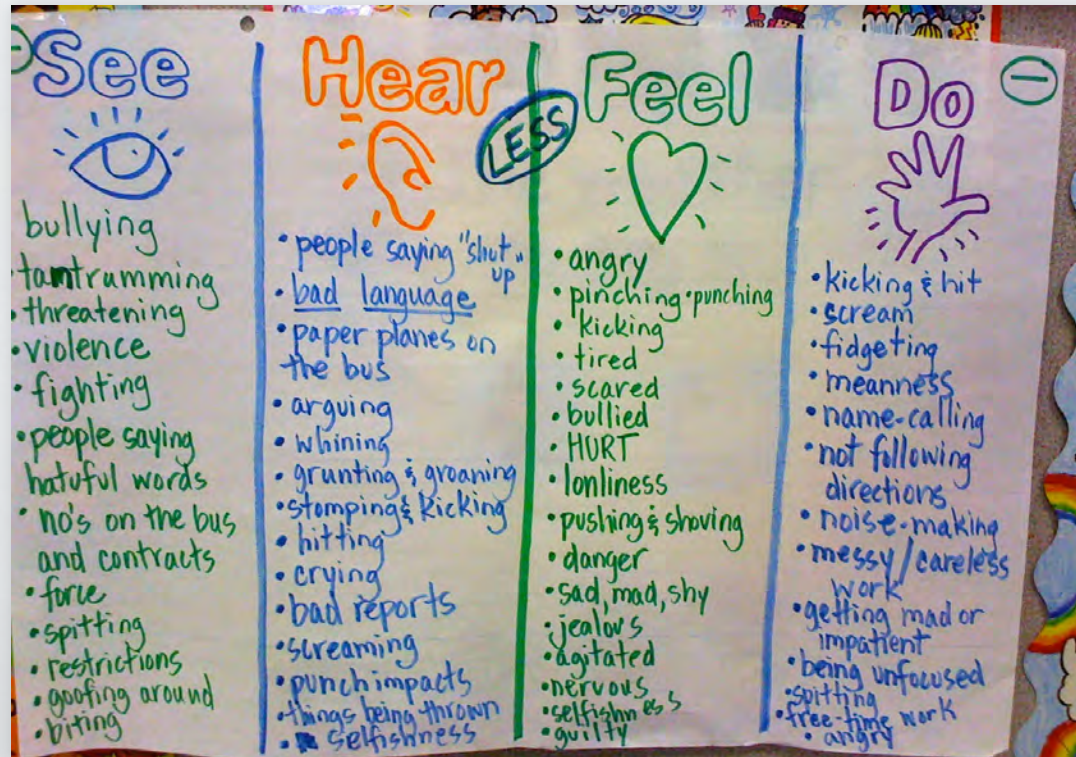 See
bullying
• tantrumming
• threatening
• violence
• fighting
• people saying
hatuful words
• no's on the bus
and contracts
• force
• spitting
• restrictions
• goofing around
• biting
Hear
• people saying "shut
up"
• bad language
• paper planes on
the bus
• arguing
• whining
• grunting & groaning
• stomping & kicking
• hitting
• crying
• bad reports
• screaming
• punch impacts
• things being thrown
• selfishness
LESS
Feel
• angry
• pinching • punching
• kicking
• tired
• scared
• bullied
• HURT
• lonliness
• pushing & shoving
• danger
• sad, mad, shy
• jealous
• agitated
• nervous
• selfishness
• guilty
Do
• kicking & hit
• scream
• fidgeting
• meanness
• name-calling
• not following
directions
• noise-making
• messy/careless
work
• getting mad or
impatient
• being unfocused
• spitting
• free-time work
• angry